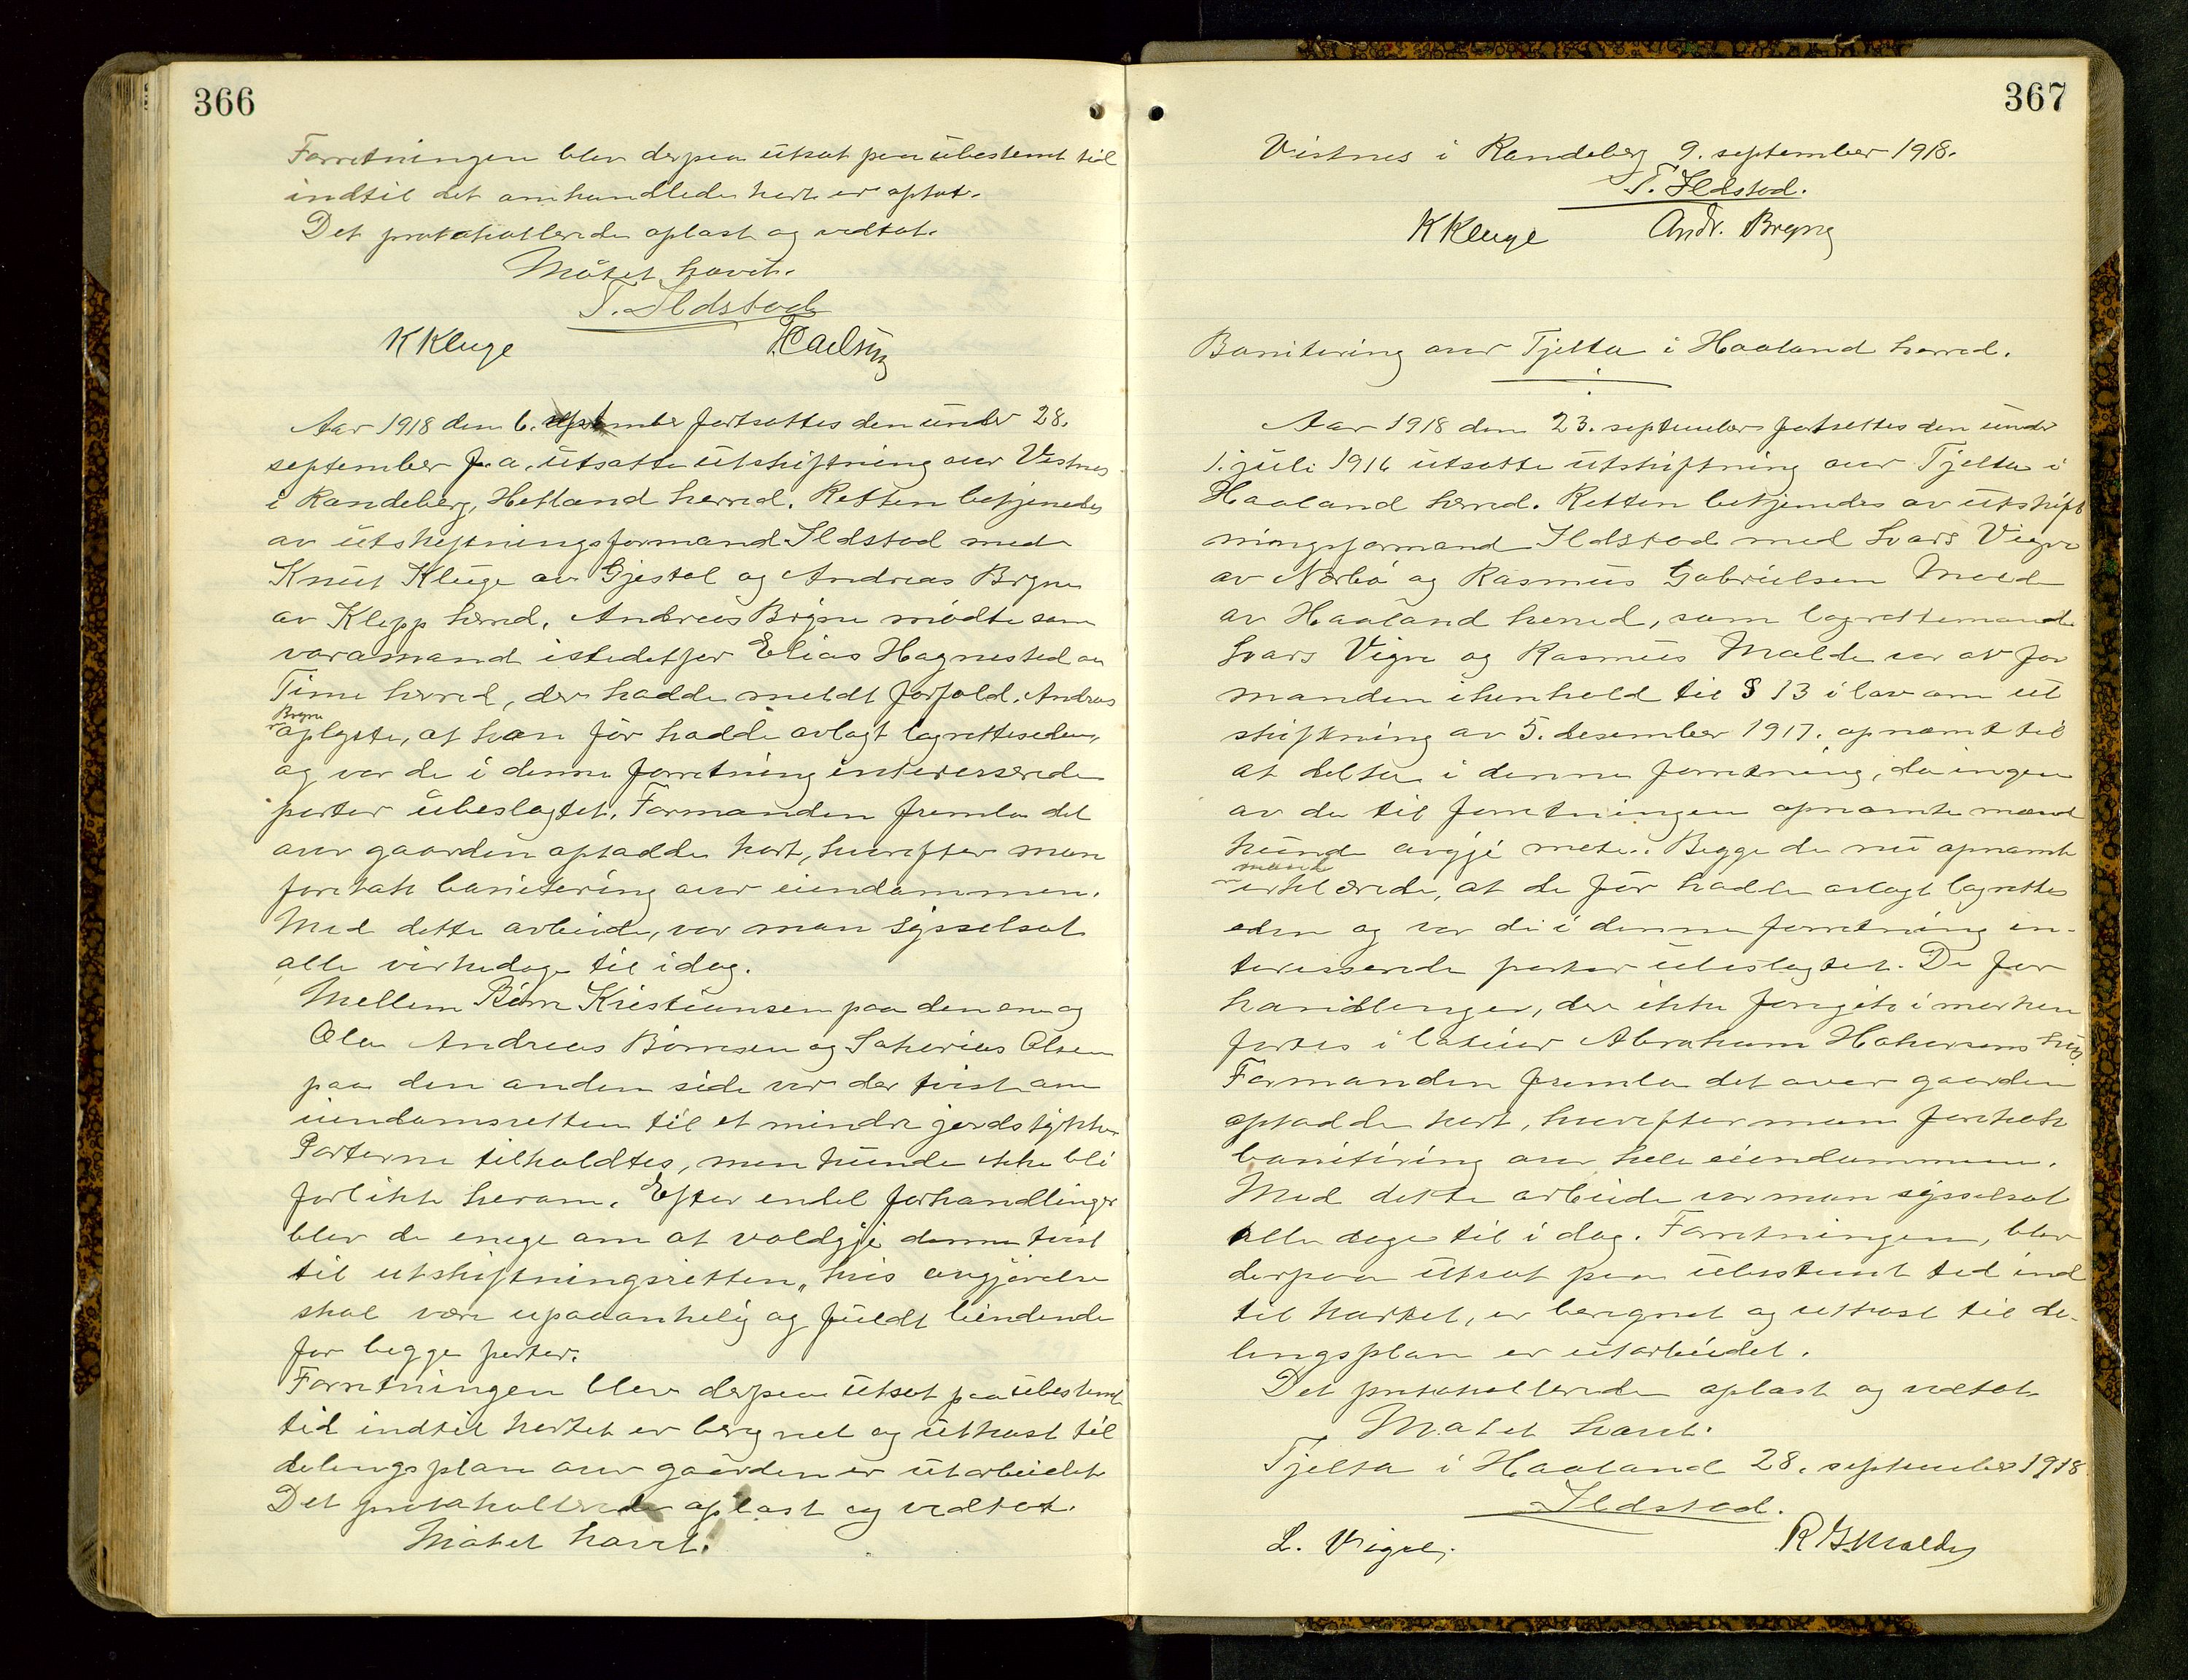 366
Forretningen blev derpaa utsat paa ubestemt tid
indtil det omhandlede kart er optat.
Det protokollerede oplæst og vedtat.
Møtet hævet.
T. Ildstad
K Kluge
Aar 1918 den 6. september fortsattes den under 28.
september f. a. utsatte utskiftning over Vistnes
i Randeberg, Hetland herred. Retten betjenedes
av utskiftningsformand Ildstad med
Knut Kluge av Gjestal og Andreas Bryne
av Klepp herred. Andreas Bryne mødte som
varamand istedetfor Elias Hognestad av
Time herred, der hadde meldt forfald. Andreas
Bryne
oplyste, at han før hadde avlagt lagretteseden,
og var de i denne forretning interesserede
parter ubeslegtet. Formanden fremla det
over gaarden optadde kart, hvorefter man
foretok bonitering over eiendommen.
Med dette arbeide, var man sysselsat
alle virkedage til idag.
Mellem Børre Kristiansen paa den ene og
Ole Andreas Børresen og Sakarias Olsen
paa den anden side var der tvist om
eiendomsretten til et mindre jordstykke.
Parterne tilholdtes, men kunde ikke bli
forlikte herom. Efter endel forhandlinger
blev de enige om at voldgi denne tvist
til utskiftningsretten, hvis avgjørelse
skal være upaaankelig og fuldt bindende
for begge parter.
Forretningen blev derpaa utsat paa ubestemt
tid indtil kartet er beregnet og utkast til
delingsplan over gaarden er utarbeidet
Det protokollerede oplæst og vedtat.
Møtet hævet.
367
Vistnes i Randeberg 9. september 1918.
T. Ildstad.
K Kluge Andr. Bryne
Bonitering over Tjelta i Haaland herred.
Aar 1918 den 23. september fortsattes den under
1. juli 1916 utsatte utskiftning over Tjelta i
Haaland herred. Retten betjendes av utskift
ningsformand Ildstad med Lars Vigre
av Nærbø og Rasmus Gabrielsen Malde
av Haaland herred, som lagrettemænd
Lars Vigre og Rasmus Malde var av for
manden ihenhold til § 13 i lov om ut
skiftning av 5. desember 1917. opnævnt til
at delta i denne forretning, da ingen
av de til forretningen opnævnte mænd
kunde avgi møte. Begge de nu opnævnte
mænd
erklærede, at de før hadde avlagt lagrettes
eden og var de i denne forretning in-
teresserede parter ubeslegtet. De for
handlinger, der ikke foregik i marken
førtes i løtinar Abraham Hakonsens hus.
Formanden fremla det over gaarden
optadde kart, hvorefter man foretok
bonitering over hele eiendommen.
Med dette arbeide var man sysselsat
alle dage til i dag. Forretningen, blev
derpaa utsat paa ubestemt tid ind
til kartet, er beregnet og utkast til de-
lingsplan er utarbeidet.
Det protokollerede oplæst og vedtat
Møtet hævet.
Tjelta i Haaland 28. september 1918
Ildstad.
L. Vigre. R G Malde